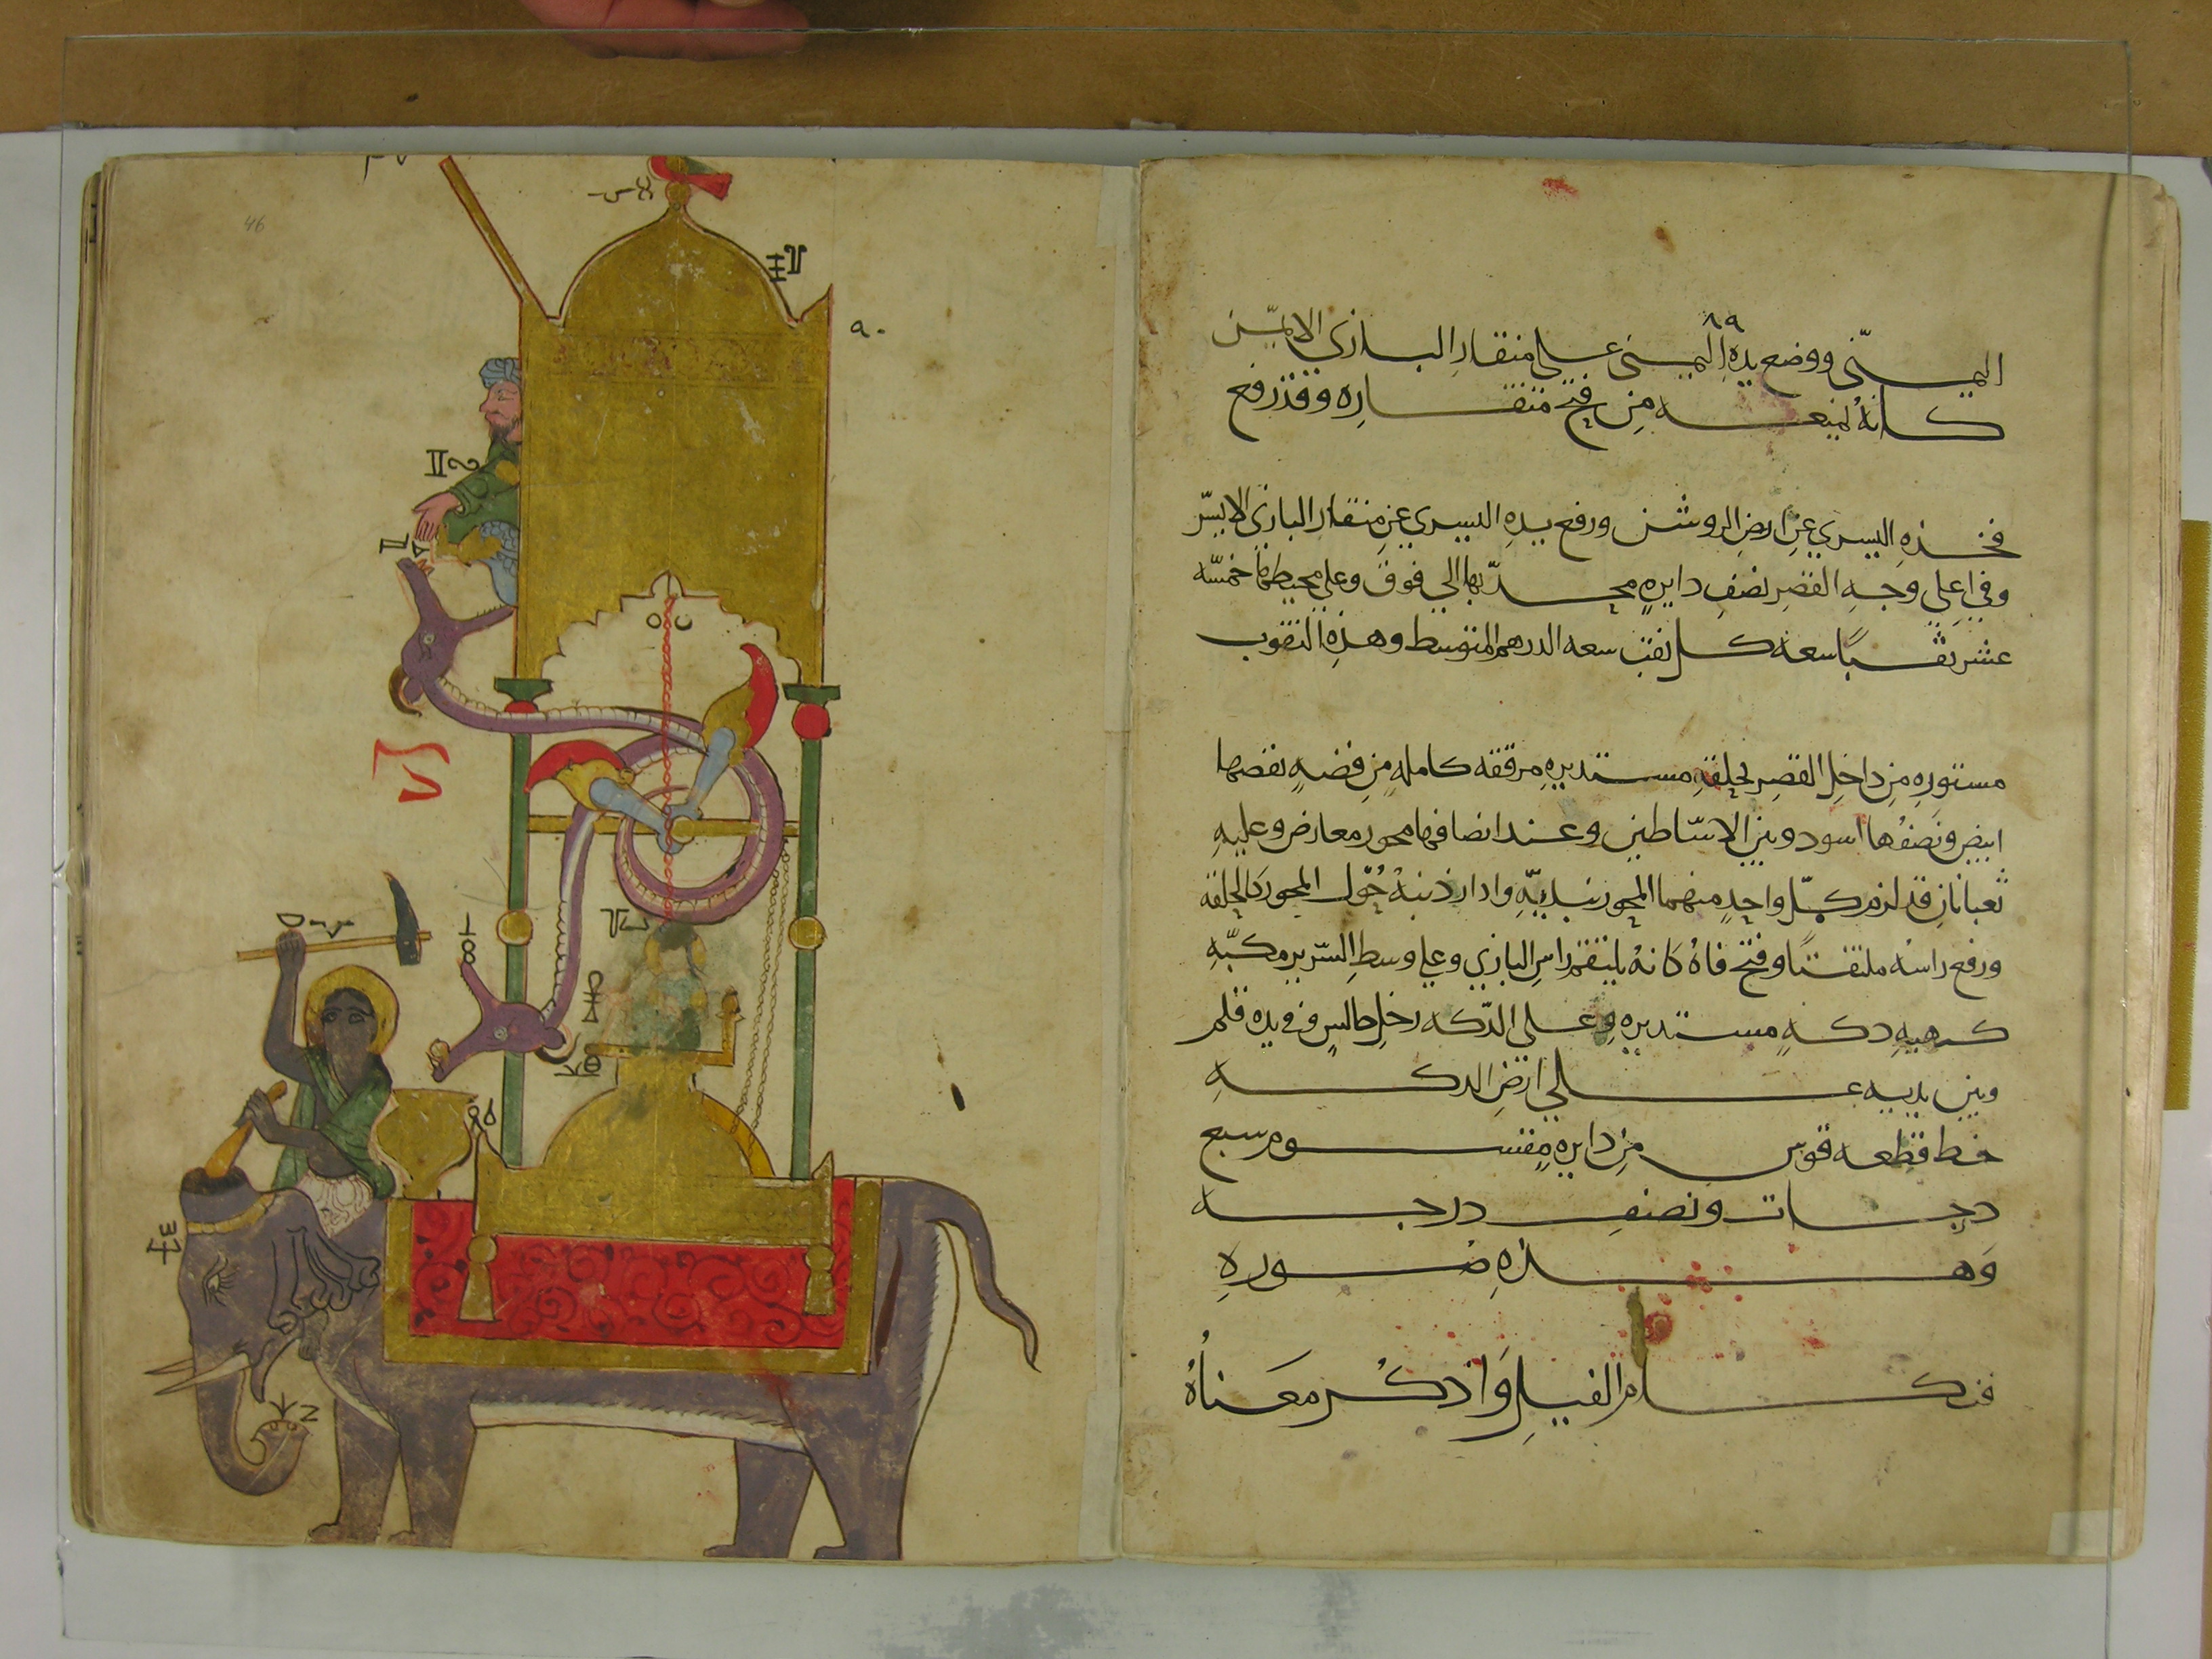 ٨٩
اليمنى ووضع يده اليمنى على منقار البازي الايمن
كانه لمنعه من فتح منقاره وقد رفع
فخذه اليسرى عن ارض الروشن ورفع يده اليسرى عن منقار البازي الايسر
وفي اعلى وجه القصر نصف دايره محدبها الى فوق وعلى محيطها خمسه
عشر نقبا سعه كل نقب سعه الدرهم المتوسط وهذه النقوب
مستوره من داخل القصر بحلقه مستديره مرققه كامله من فضه نصفها
ابيض ونصفها اسود وبين الاساطين وعند انصافها محور معارض وعليه
ثعبانان قد لزم كل واحد منهما المحور بيديه وادار ذنبه حول المحور كالحلقه
ورفع راسه ملتفتا وفتح فاه كانه يلتقم راس البازي وعلى وسط السرير مكبه
كهيه دكه مستديره وعلى الدكه رجل جالس وفي يده قلم
وبين يديه على ارض الدكه
خط قطعه قوس من دايره مقسوم سبع
درجات ونصف درجه
وهذه صوره
فتكلم الفيل واذكر معناه
٩٠
46